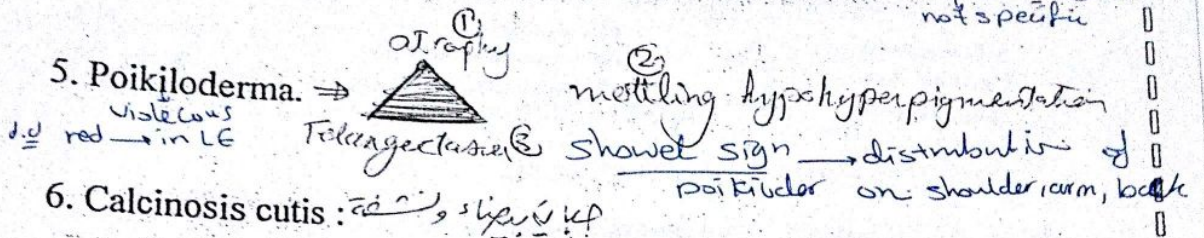 not specific
① atrophy
5. Poikiloderma. → ② mottling hypohyperpigmentation
violecous
d.d red → in LE Telangectasia ③ showel sign → distribution of
poikiloder on shoulder, arm, back
6. Calcinosis cutis :